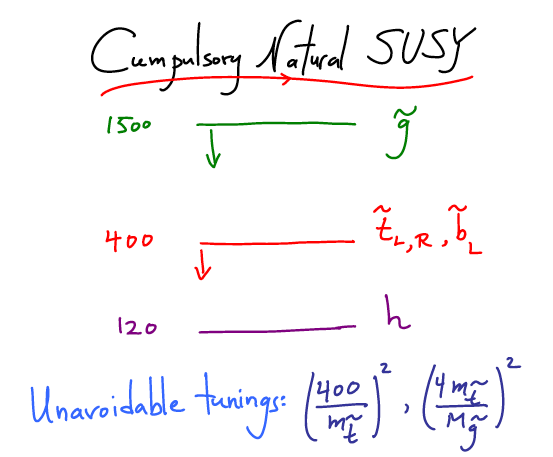 Cumpulsory Natural SUSY
1500 g̃
400 t̃_L,R, b̃_L
120 h
Unavoidable tunings: (400/m_t̃)², (4m_t̃/M_g̃)²